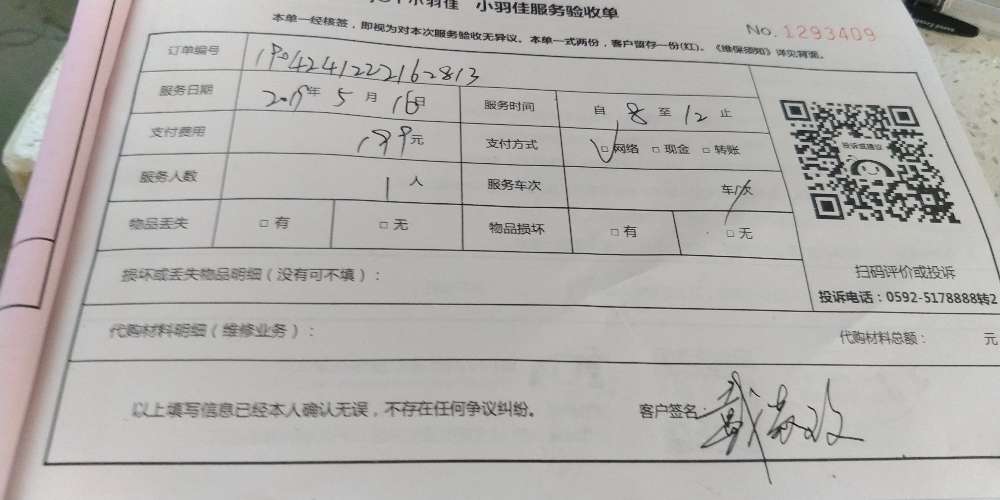 小羽佳服务验收单
本单一经核签，即视为对本次服务验收无异议。本单一式两份，客户留存一份(红)。《维保须知》详见背面。
No. 1293409
订单编号 1904241222162813
服务日期 2019年 5月 16日 服务时间 自 8 至 12 止
支付费用 199元 支付方式 □网络 □现金 □转账
服务人数 1人 服务车次 车/次
物品丢失 □有 □无 物品损坏 □有 □无
投诉或建议
扫码评价或投诉
投诉电话：0592-5178888转2
损坏或丢失物品明细（没有可不填）：
代购材料明细（维修业务）： 代购材料总额： 元
以上填写信息已经本人确认无误，不存在任何争议纠纷。 客户签名